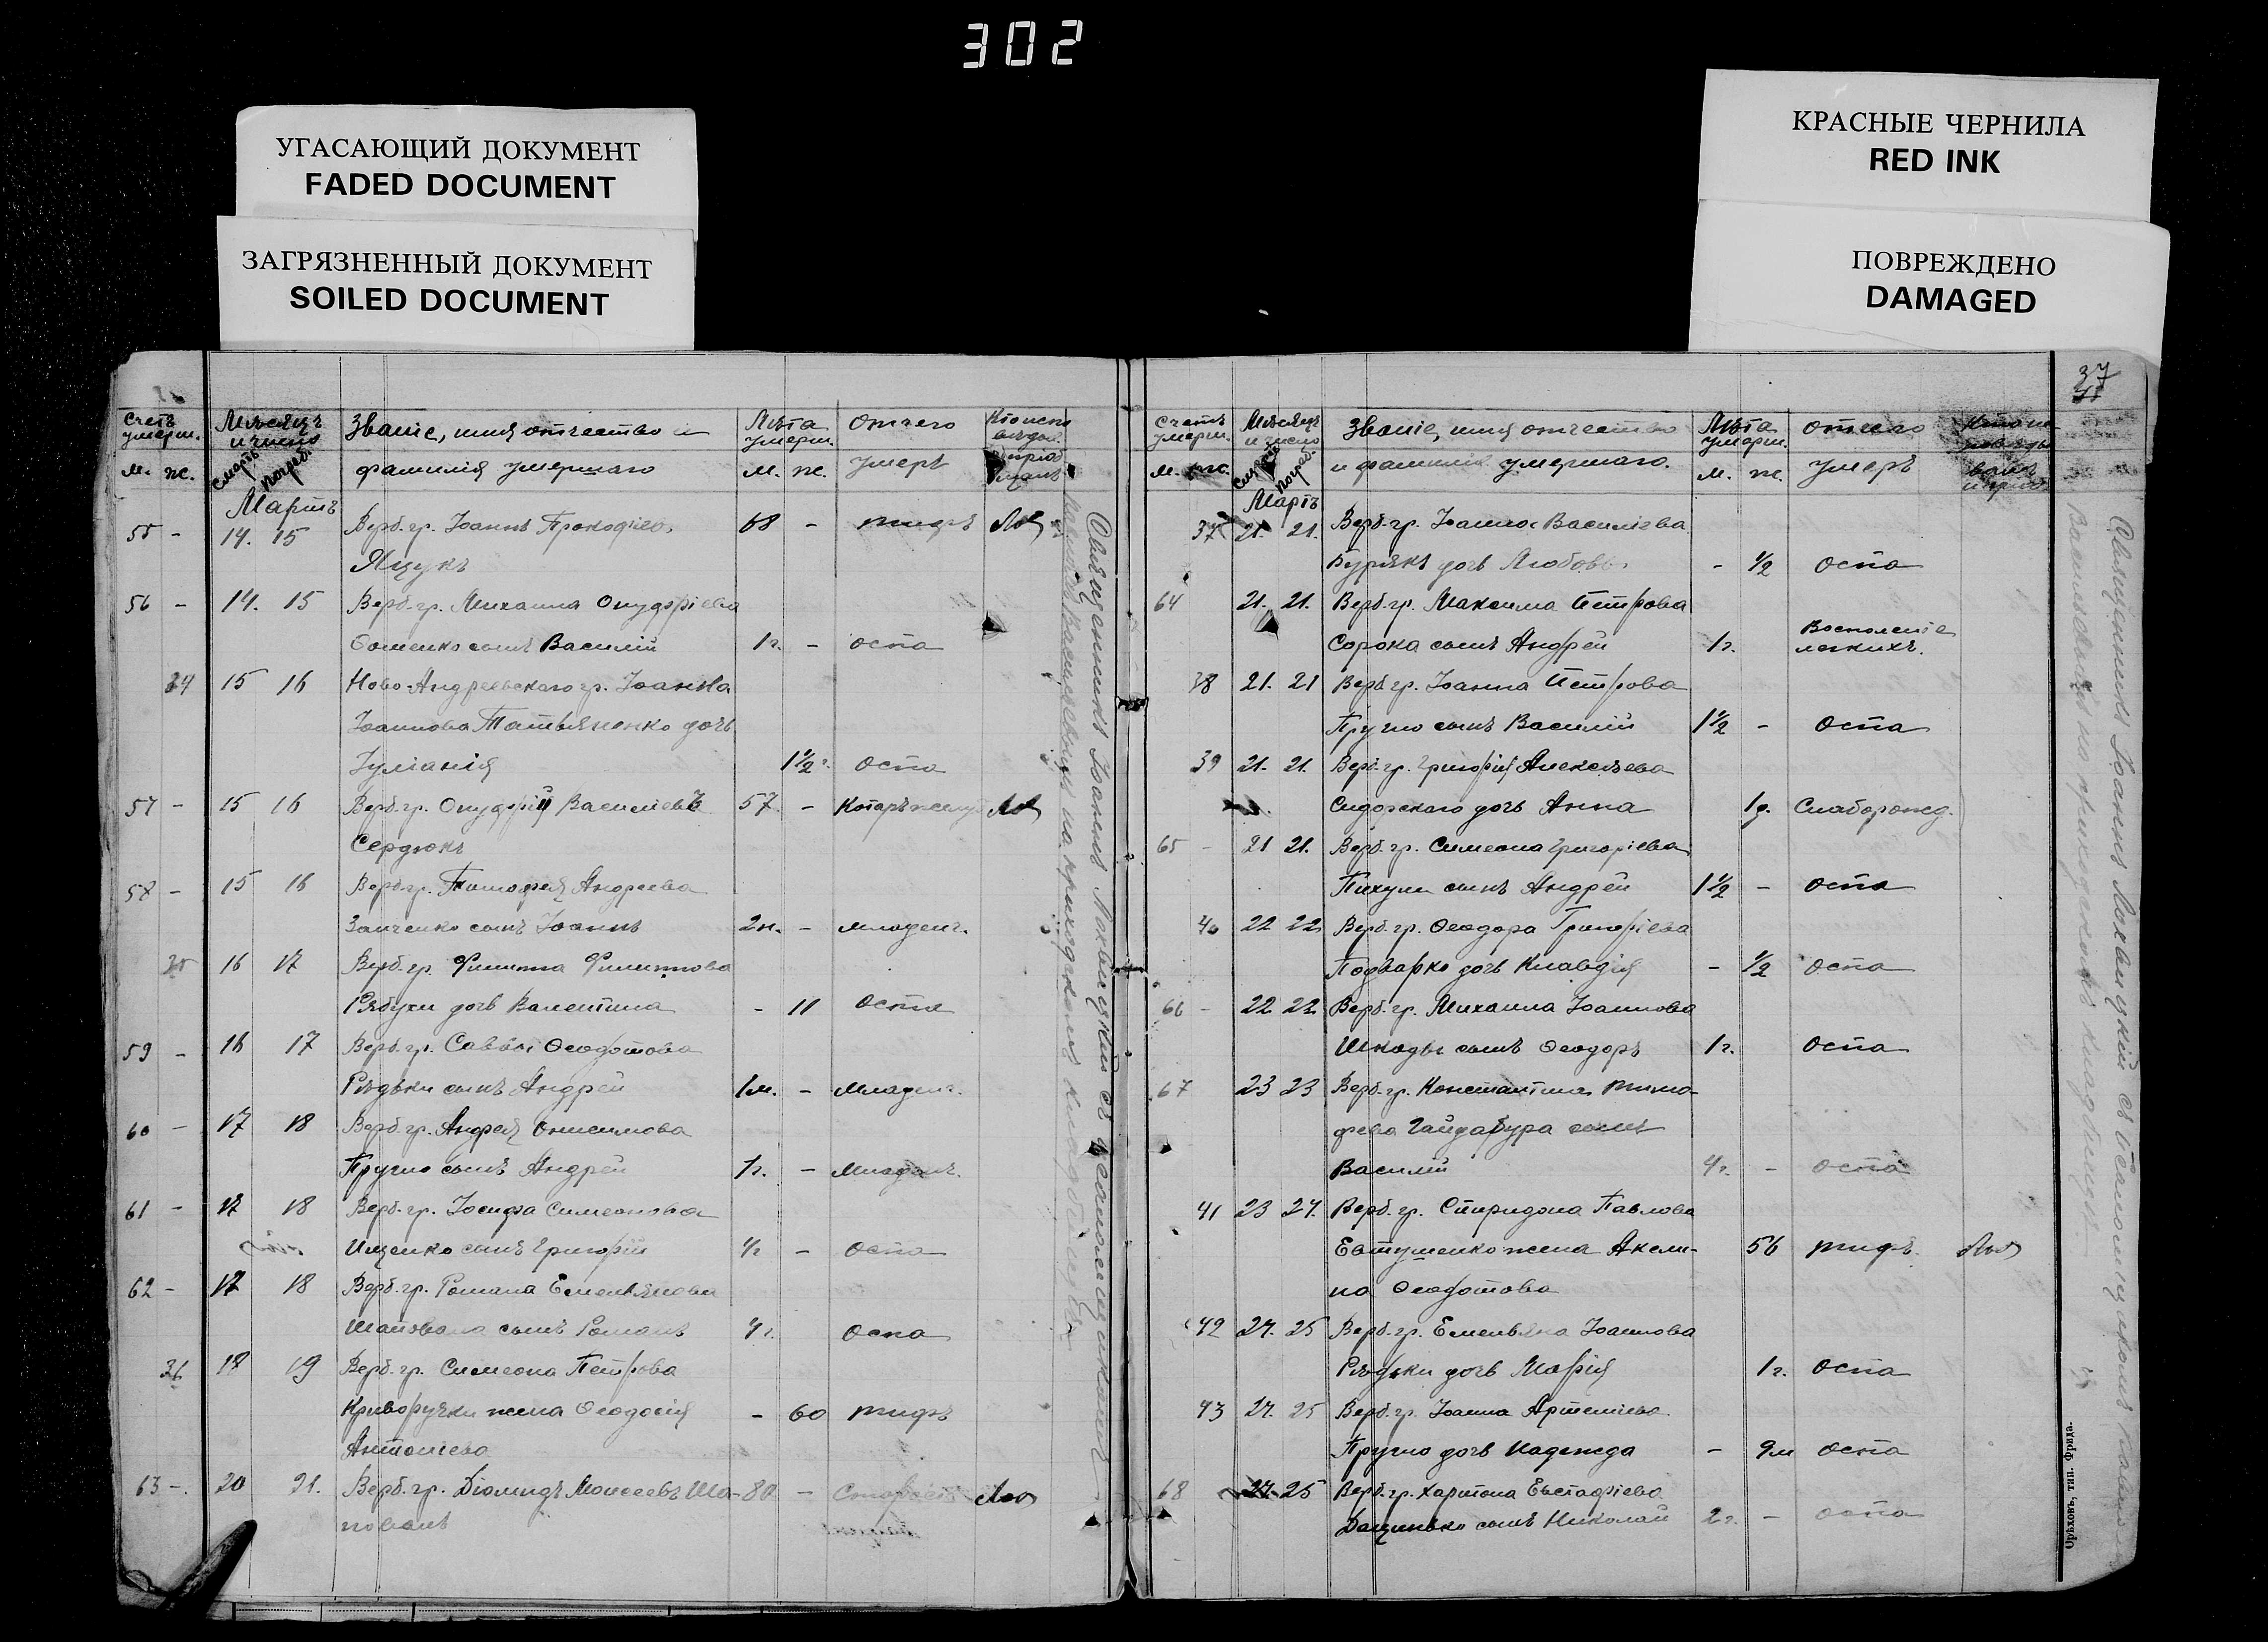 302
УГАСАЮЩИЙ ДОКУМЕНТ
FADED DOCUMENT
ЗАГРЯЗНЕННЫЙ ДОКУМЕНТ
SOILED DOCUMENT
КРАСНЫЕ ЧЕРНИЛА
RED INK
ПОВРЕЖДЕНО
DAMAGED
Счетъ умерш. Мѣсяцъ и число Званіе, имя отчество и Лѣта умерш. Отчего
м. ж. смерть погреб. фамилія умершаго м. ж. умеръ
Мартъ
55 - 14. 15 Верб. гр. Іоаннъ Прокофіев. 68 - тифъ
Яцукъ
56 - 14. 15 Верб. гр. Михаила Онуфріева
сынъ Василій 1 г. - оспа
34 15 16 Ново-Андреевскаго гр. Іоанна
Іоаннова Татьяненко дочь
Іуліанія 1½ г. оспа
57 - 15 16 Верб. гр. Онуфрій Василіевъ 57 -
Сердюкъ
58 - 15 16 Верб. гр. Тимофея Андреева
Заиченко сынъ Іоаннъ 2 н. - младенч.
35 16 17 Верб. гр. Филиппа Филиппова
Рябухи дочь Валентина - 11 оспа
59 - 16 17 Верб. гр. Саввы Ѳеодотова
Рѣдьки сынъ Андрей 1 м. - младенч.
60 - 17 18 Верб. гр. Андрея Онисимова
Пругло сынъ Андрей 1 г. - младенч.
61 - 17 18 Верб. гр. Іосифа Симеонова
Ищенко сынъ Григорій - оспа
62 - 17 18 Верб. гр. Романа Емельянова
Шаповала сынъ Романъ 4 г. оспа
36 18 19 Верб. гр. Симеона Петрова
Криворучки жена Ѳеодосія - 60 тифъ
Антоніева
63 -. 20 21. Верб. гр. Діомидъ Моисеевъ Ша- 80 -
повалъ
Священникъ Іоаннъ Лохвицкій съ псаломщикомъ
37
Счетъ умерш. Мѣсяцъ и число Званіе, имя отчество Лѣта умерш. отчего
м. ж. погреб. и фамилія умершаго. м. ж. умеръ
Мартъ
37 21. 21. Верб. гр. Іоанна Василіева
Бурякъ дочь Любовь. - ½ оспа
64 21. 21. Верб. гр. Максима Петрова
Сорока сынъ Андрей 1 г. Воспаленіе легкихъ.
38 21. 21 Верб. гр. Іоанна Петрова
Пругло сынъ Василій 1½ - оспа
39 21. 21. Верб. гр. Григорія Алексѣева
Сидорскаго дочь Анна 1 д. Слаборожд.
65 - 21 21. Верб. гр. Симеона Григоріева
сынъ Андрей 1½ - оспа
40 22 22 Верб. гр. Ѳеодора Григоріева
Подварко дочь Клавдія - ½ оспа
66 - 22 22 Верб. гр. Михаила Іоаннова
Шкоды сынъ Ѳеодоръ 1 г. оспа
67 23 23 Верб. гр. Константина Тимо-
феева Гайдабура сынъ
Василій 4 г. - оспа
41 23 24. Верб. гр. Спиридона Павлова
Евтушенко жена Акели-
на Ѳеодотова 56 тифъ.
42 24. 25 Верб. гр. Емельяна Іоаннова
Рѣдьки дочь Марія 1 г. оспа
43 24. 25 Верб. гр. Іоанна Артеміева
Пругло дочь Надежда - 9 м оспа
68 24. 25 Верб. гр. Харитона Евстафіева
Дацинько сынъ Николай 2 г. - оспа
Священникъ Іоаннъ Лохвицкій съ псаломщикомъ
Орѣховъ, тип. Фрида.